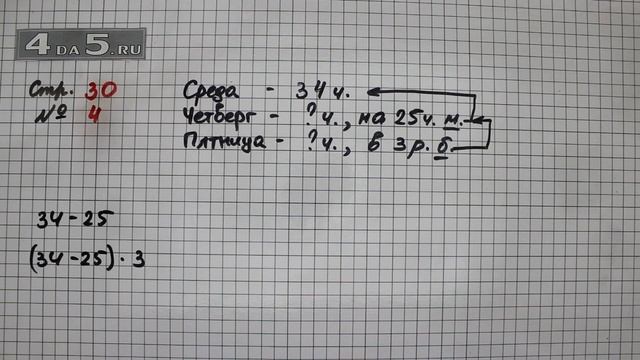 4 DA 5.RU
Стр. 30
№ 4
Среда - 34 ч.
Четверг - ? ч., на 25 ч. м.
Пятница - ? ч., в 3 р. б.
34 - 25
(34 - 25) · 3